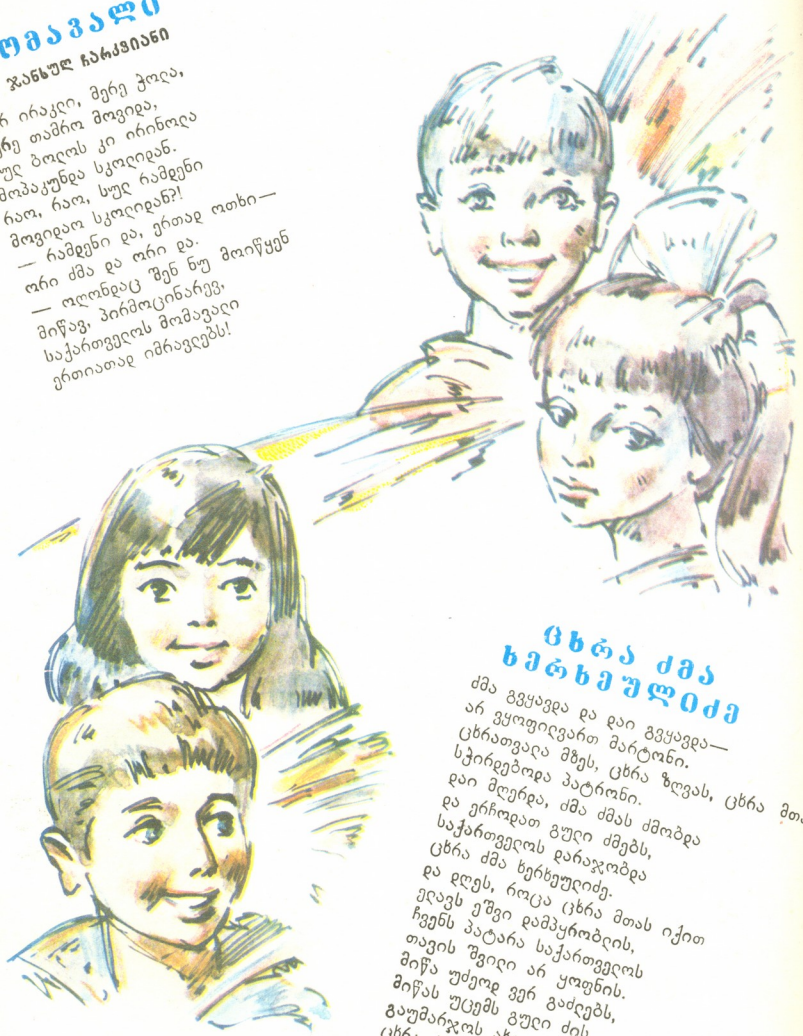 ომავალი
ჯანსუღ ჩარკვიანი
რ ირაკლი, მერე ჭოლა,
რე თამრო მოვიდა,
ულ ბოლოს კი ირინოლა
მოპაკუნდა სკოლიდან.
რაო, რაო, სულ რამდენი
მოვიდაო სკოლიდან?!
— რამდენი და, ერთად ოთხი—
ორი ძმა და ორი და.
— ოღონდაც შენ ნუ მოიწყენ
მიწავ, პირმოცინარევ,
საქართველოს მომავალი
ერთიათად იმრავლებს!
ცხრა ძმა
ხერხეულიძე
ძმა გვყავდა და დაი გვყავდა—
არ ვყოფილვართ მარტონი.
ცხრათვალა მზეს, ცხრა ზღვას, ცხრა მთა
სჭირდებოდა პატრონი.
დაი მღერდა, ძმა ძმას ძმობდა
და ერჩოდათ გული ძმებს,
საქართველოს დარაჯობდა
ცხრა ძმა ხერხეულიძე.
და დღეს, როცა ცხრა მთას იქით
ელავს ეშვი დამპყრობლის,
ჩვენს პატარა საქართველოს
თავის შვილი არ ყოფნის.
მიწა უძეოდ ვერ გაძლებს,
მიწას უცემს გული ძის
გაუმარჯოს